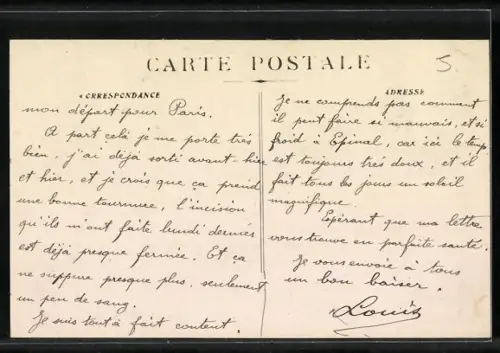 CARTE POSTALE
5.
CORRESPONDANCE
mon départ pour Paris.
A part celà je me porte très
bien, j'ai déjà sorti avant-hier
et hier, et je crois que ça prend
une bonne tournure, l'incision
qu'ils m'ont faite lundi dernier
est déjà presque fermée. Et ça
ne suppure presque plus, seulement
un peu de sang.
Je suis tout à fait content.
ADRESSE
Je ne comprends pas comment
il peut faire si mauvais, et si
froid à Epinal, car ici le temps
est toujours très doux, et il
fait tous les jours un soleil
magnifique.
Espérant que ma lettre
vous trouve en parfaite santé.
Je vous envoie à tous
un bon baiser.
Louis